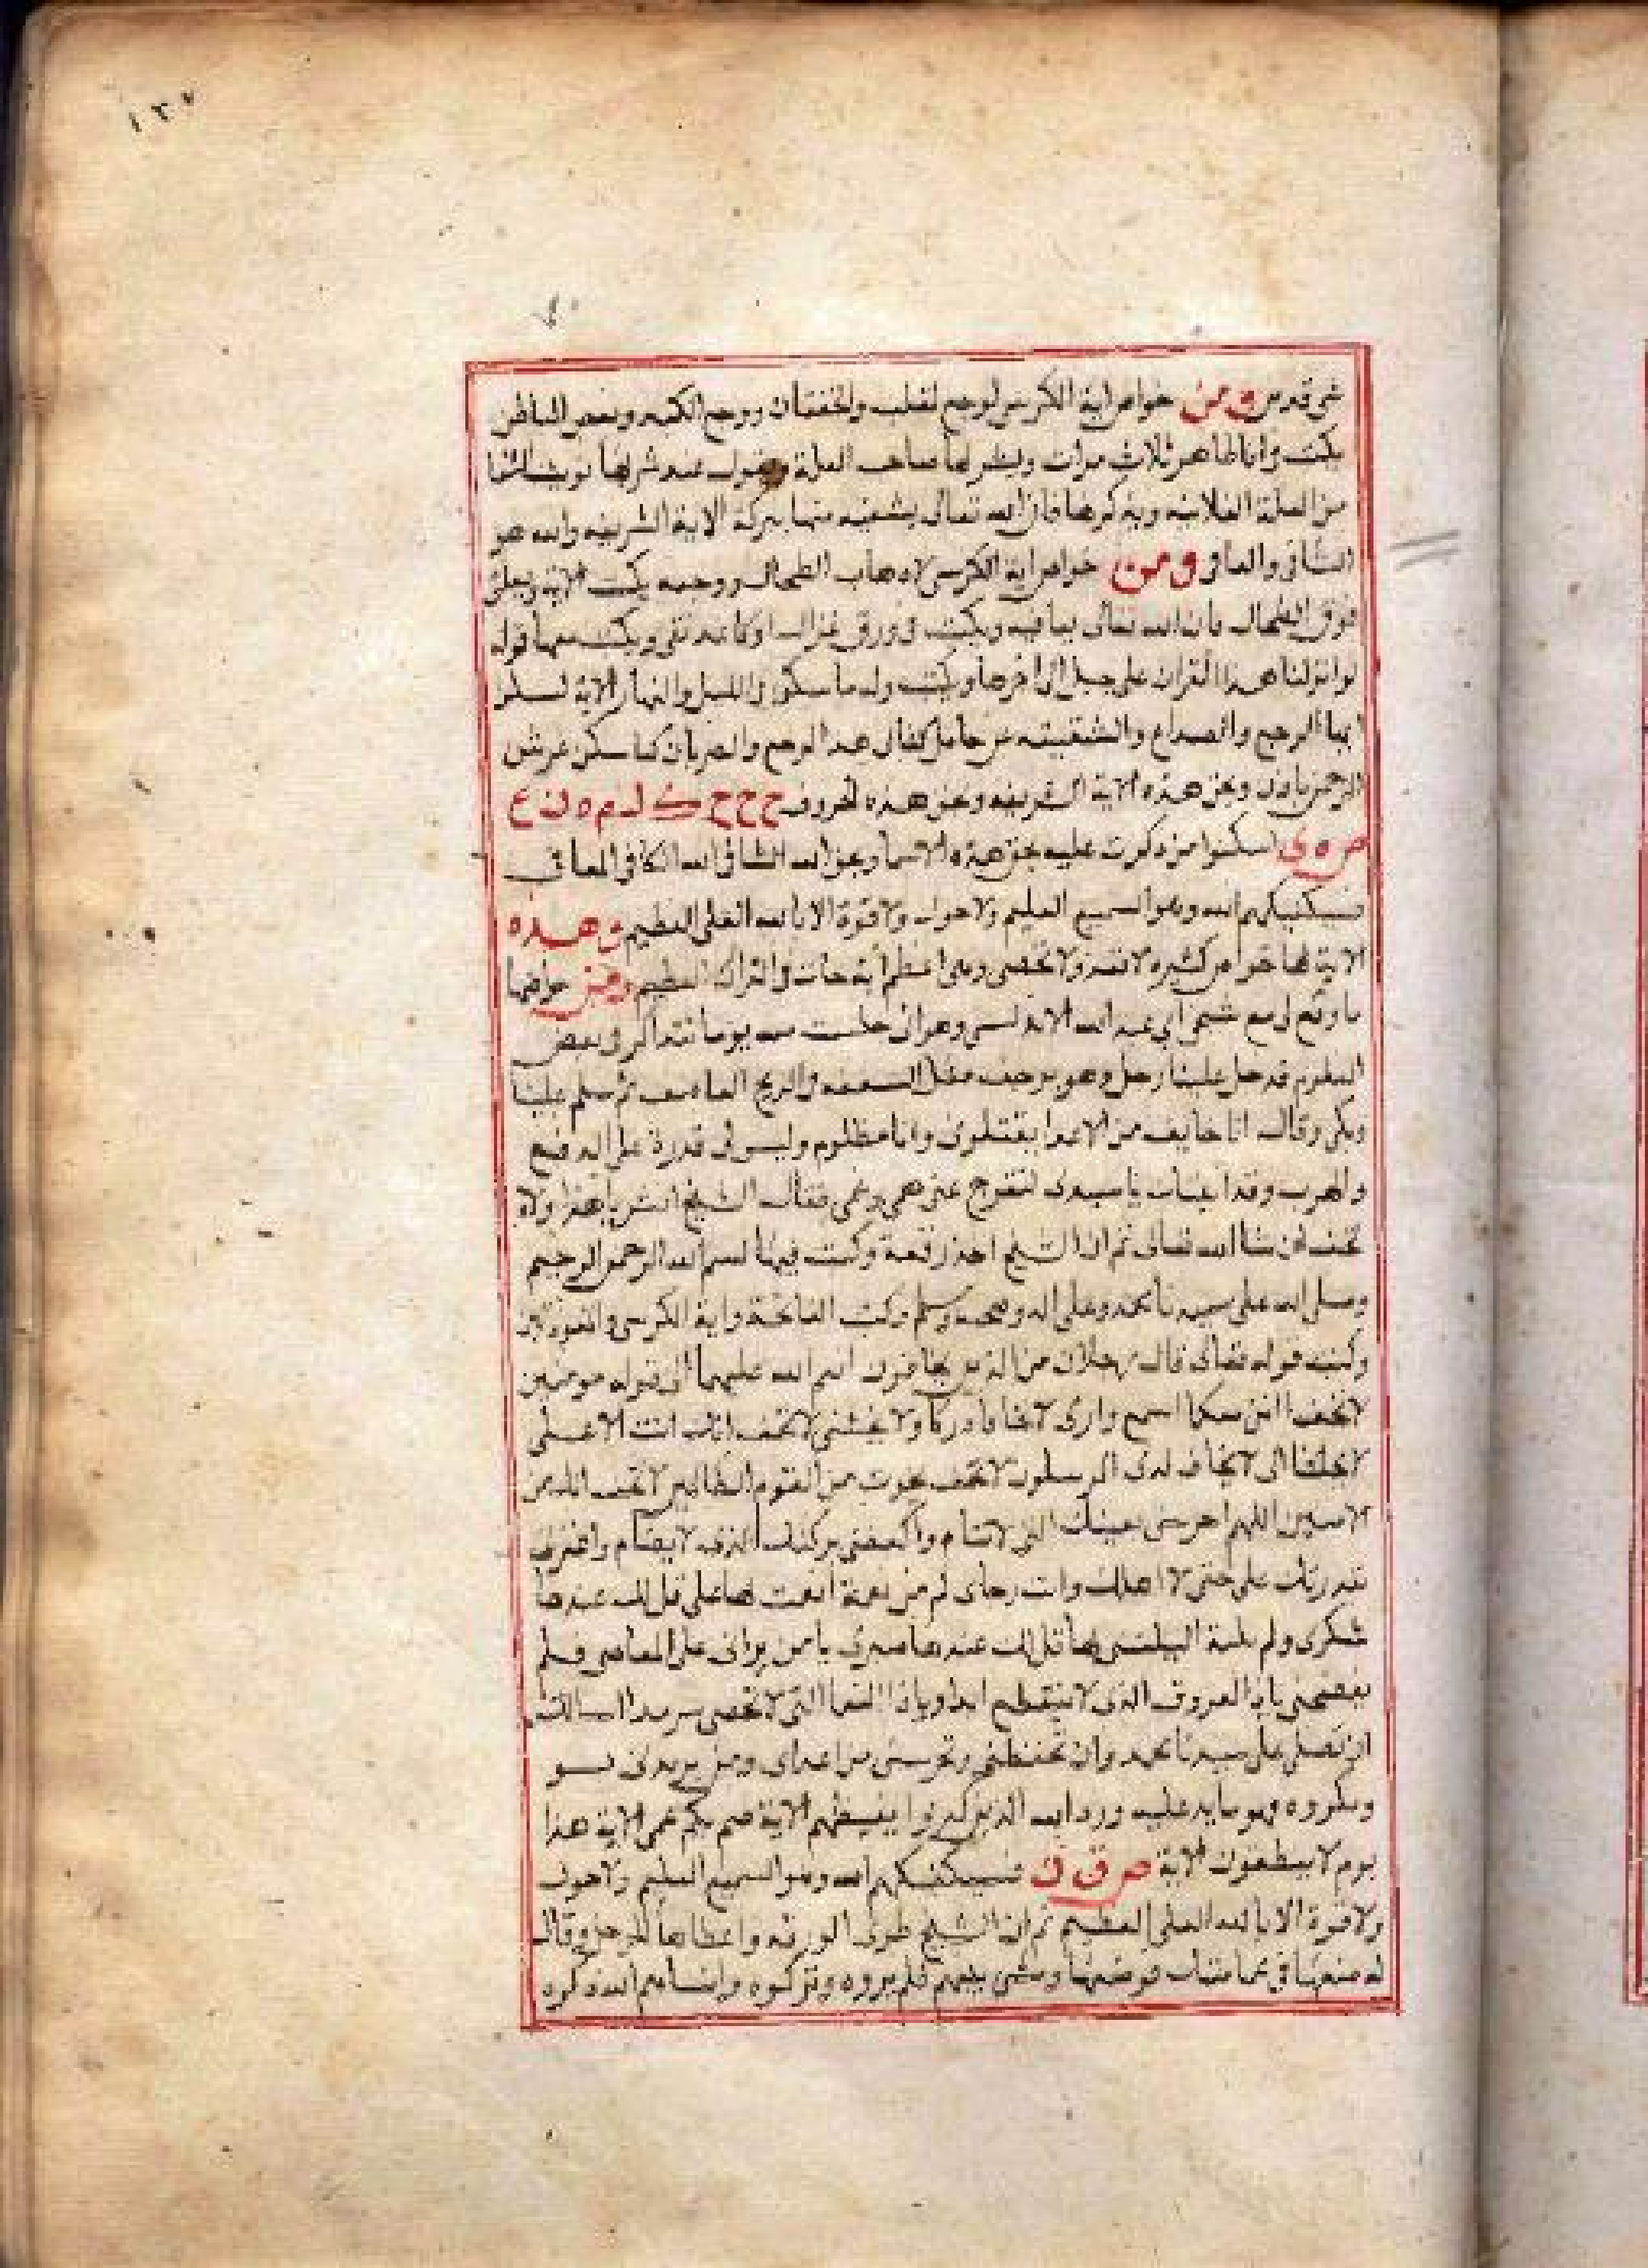 ١٣٧
ومن خواص اية الكرسي لوجع القلب والخفقان ووجع الكبد ومغص الباطن
يكتب في انا طاهر ثلاث مرات وينظر لها صاحب العلة ويقول عند شربها نويت الشفا
من العلة الفلانية ويذكرها فان الله تعالى يشفيه منها ببركة الاية الشريفة والله هو
الشافي والمعافي ومن خواص اية الكرسي لاذهاب الطحال ووجعه يكتب الاية ويعلق
فوق الطحال فان الله تعالى يعافيه ويكتب في ورق غزال او كاغد نقي ويكتب معها قوله
لو انزلنا هذا القران على جبل الى اخرها ويكتب وله ما سكن في الليل والنهار الاية اسكن
ايها الوجع والصداع والشقيقة عن حامل كتابي هذا الوجع والضربان كما سكن عرش
الرحمن باذن وبحق هذه الاية الشريفة وبحق هذه الحروف ح ح ح ك ل م ه ن ع
ص ه ي اسكنوا من ذكرت عليه بحق هذه الاسما وبحق الله الشافي الله الكافي المعافي
فسيكفيكهم الله وهو السميع العليم ولا حول ولا قوة الا بالله العلي العظيم وهذه
الاية لها خواص كثيرة لا تعد ولا تحصى وهي اعظم اية جات في القران العظيم ومن خواصها
ما وقع لي مع شيخي ابي عبد الله الاندلسي وهو اني جلست معه يوما نتذاكر في بعض
العلوم فدخل علينا رجل وهو يرجف مثل السعفة في الريح العاصف ثم سلم علينا
وبكى وقال انا خايف من الاعدا يقتلوني وانا مظلوم وليس لي قدرة على الدفع
والهرب وقد اتيتك يا سيدي لتفرج عني همي وغمي فقال الشيخ ابشر يا هذا ولا
تخف ان شا الله تعالى ثم ان الشيخ اخذ رقعة وكتب فيها بسم الله الرحمن الرحيم
وصلى الله على سيدنا محمد وعلى اله وصحبه وسلم وكتب الفاتحة واية الكرسي والمعوذتين
وكتب قوله تعالى قال رجلان من الذين يخافون انعم الله عليهما الى قوله مومنين
لا تخافا انني معكما اسمع وارى لا تخاف دركا ولا تخشى لا تخف انك انت الاعلى
لا يخاف لدي المرسلون لا تخف نجوت من القوم الظالمين لا تخف انك من
الامنين اللهم احرسني بعينك التي لا تنام واكنفني بركنك الذي لا يضام واغفر لي
بقدرتك علي حتى لا اهلك وانت رجاي كم من نعمة انعمت بها علي قل لك عندها
شكري وكم بلية ابتليتني بها قل لك عندها صبري يا من يراني على المعاصي فلم
يفضحني يا ذا المعروف الذي لا ينقطع ابدا ويا ذا النعما التي لا تحصى سرمدا اسالك
ان تصلي على سيدنا محمد وان تحفظني وتحرسني من اعداي ومن يريدني بسو
ومكروه ورد الله الذين كفروا بغيظهم الاية صم بكم عمي الاية هذا
يوم لا ينطقون الاية ص ق ن فسيكفيكهم الله وهو السميع العليم ولا حول
ولا قوة الا بالله العلي العظيم ثم ان الشيخ طوى الورقة واعطاها للرجل وقال
له ضعها في عمامتك فوضعها ومشى بينهم فلم يروه وتركوه وانساهم الله ذكره